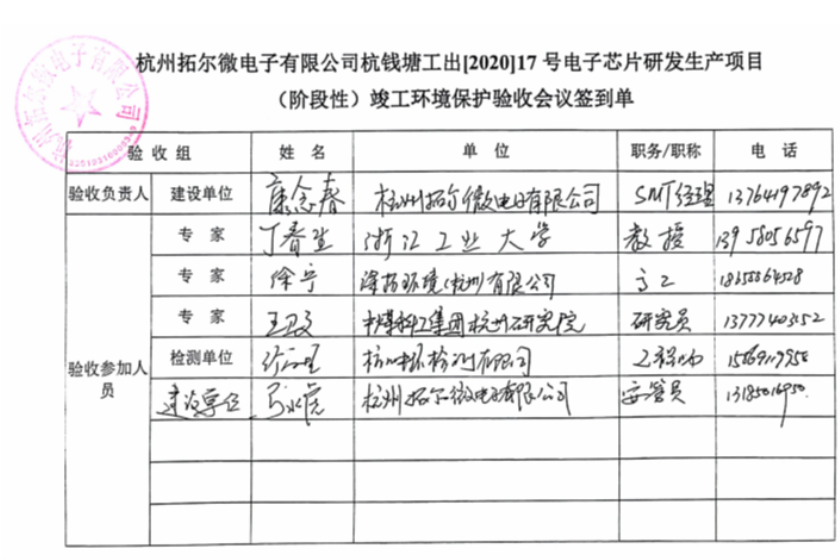 杭州拓尔微电子有限公司杭钱塘工出[2020]17 号电子芯片研发生产项目
（阶段性）竣工环境保护验收会议签到单
验 收 组 姓 名 单 位 职务/职称 电 话
验收负责人 建设单位 康念春 杭州拓尔微电子有限公司 SMT经理 13764197892
专 家 丁春生 浙江工业大学 教授 13958056597
专 家 徐宁 环境(杭州)有限公司 高工
专 家 王卫文 中煤科工集团杭州研究院 研究员 13777403152
验收参加人员
检测单位 有限公司 工程师
建设单位 杭州拓尔微电子有限公司 安管员